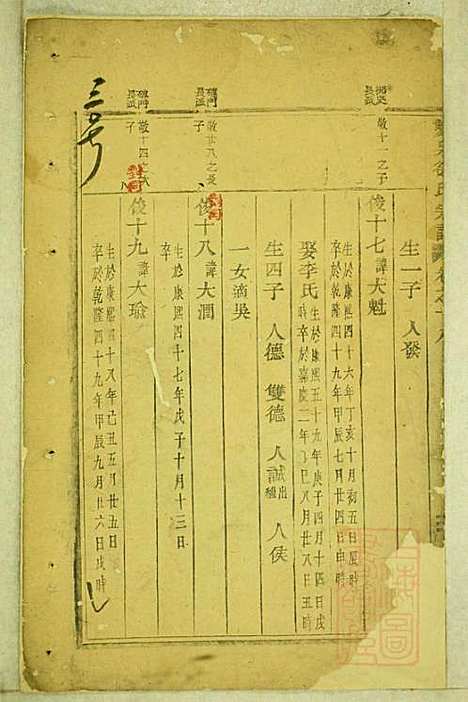 生一子 人發
敬十一之子
俊十七諱大魁
生於康熙四十六年丁亥十月初五日辰時
卒於乾隆四十九年甲辰七月廿四日申時
娶李氏
生於康熙五十九年庚子四月十四日戌時
卒於嘉慶二年丁巳八月廿八日丑時
生四子 人德 雙德 人誠出繼 人俟
一女適吳
敬廿八之長子
俊十八諱大潤
生於康熙四十七年戊子十月十三日
卒
敬十四之子
俊十九諱大瑜
生於康熙四十八年己丑五月廿五日
卒於乾隆四十九年甲辰九月廿六日戌時